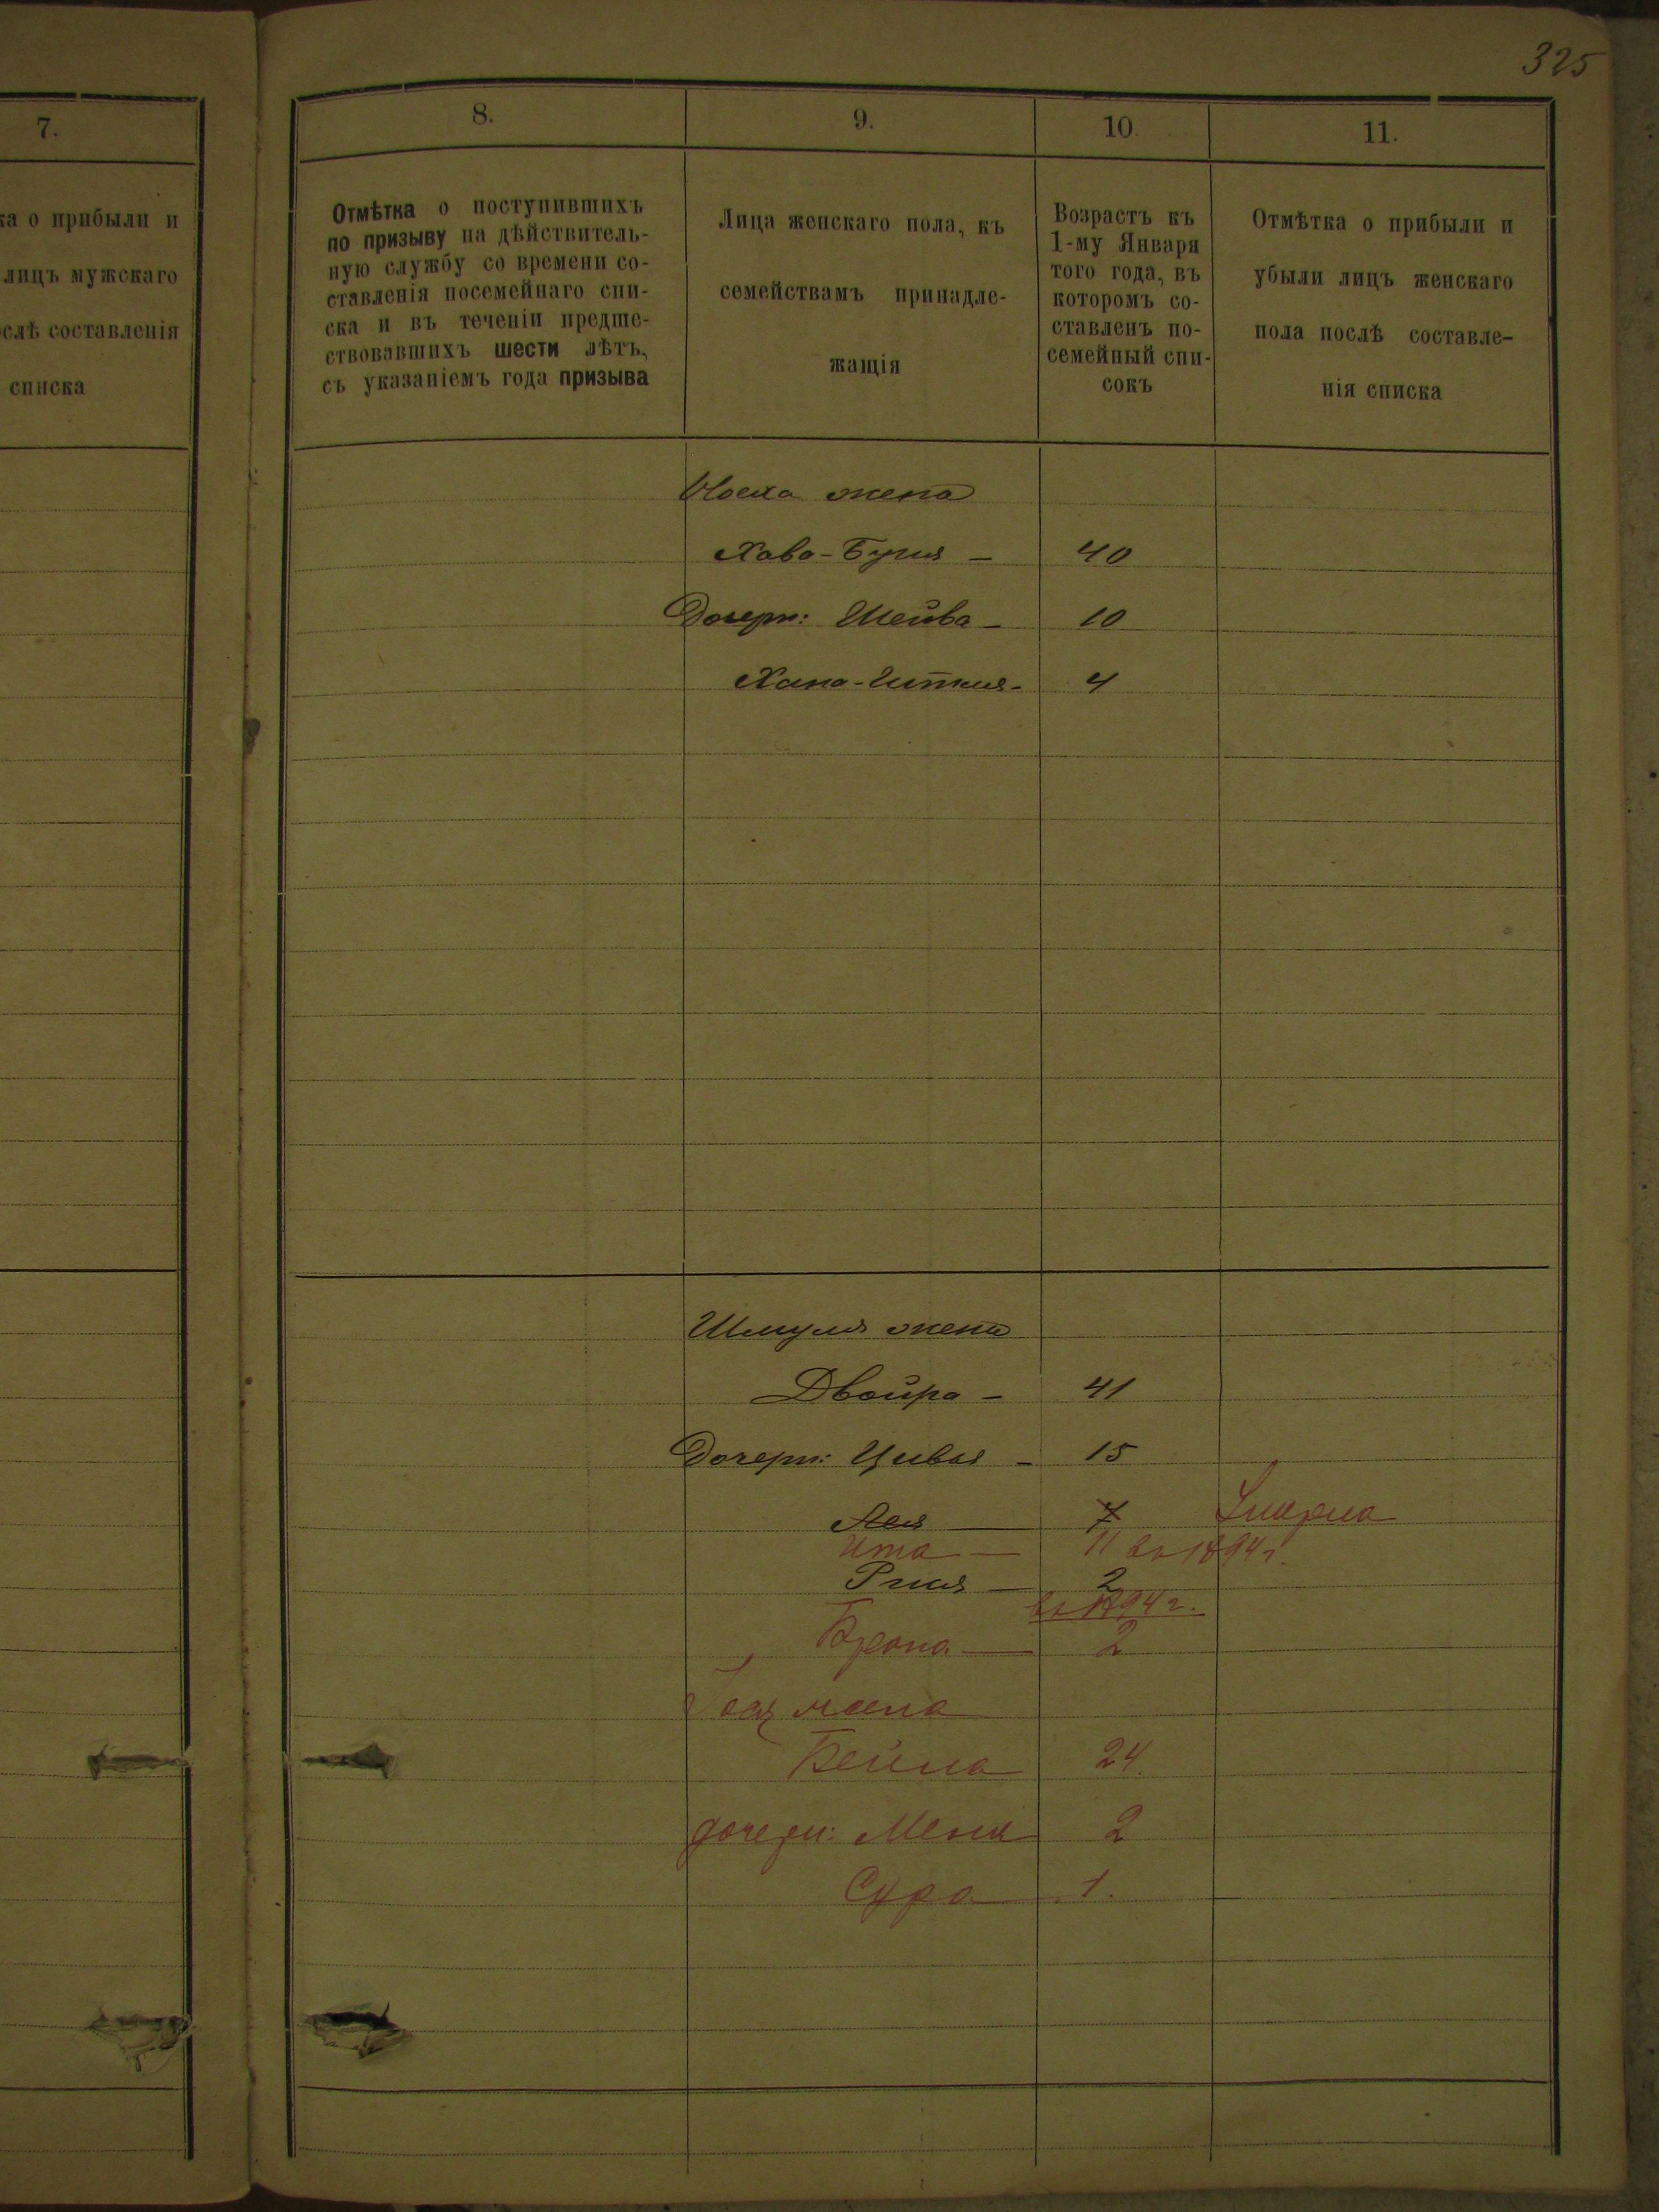 325
7.
ка о прибыли и
лицъ мужскаго
слѣ составленія
списка
8.
9.
10.
11.
Отмѣтка о поступившихъ
по призыву на дѣйствитель-
ную службу со времени со-
ставленія посемейнаго спи-
ска и въ теченіи предше-
ствовавшихъ шести лѣтъ,
съ указаніемъ года призыва
Лица женскаго пола, къ
семействамъ принадле-
жащія
Возрастъ къ
1-му Января
того года, въ
которомъ со-
ставленъ по-
семейный спи-
сокъ
Отмѣтка о прибыли и
убыли лицъ женскаго
пола послѣ составле-
нія списка
жена
Хава-Буня - 40
Дочери: Шейва - 10
Хана-Иткия - 4
Шмуля жена
Двойра - 41
Дочери: Цивья - 15
Лея 7 Умерла
Ита - 11 въ 1894 г.
2
въ 1894 г.
Брона - 2
жена
Бейла 24.
дочери: Меня 2
Сура 1.